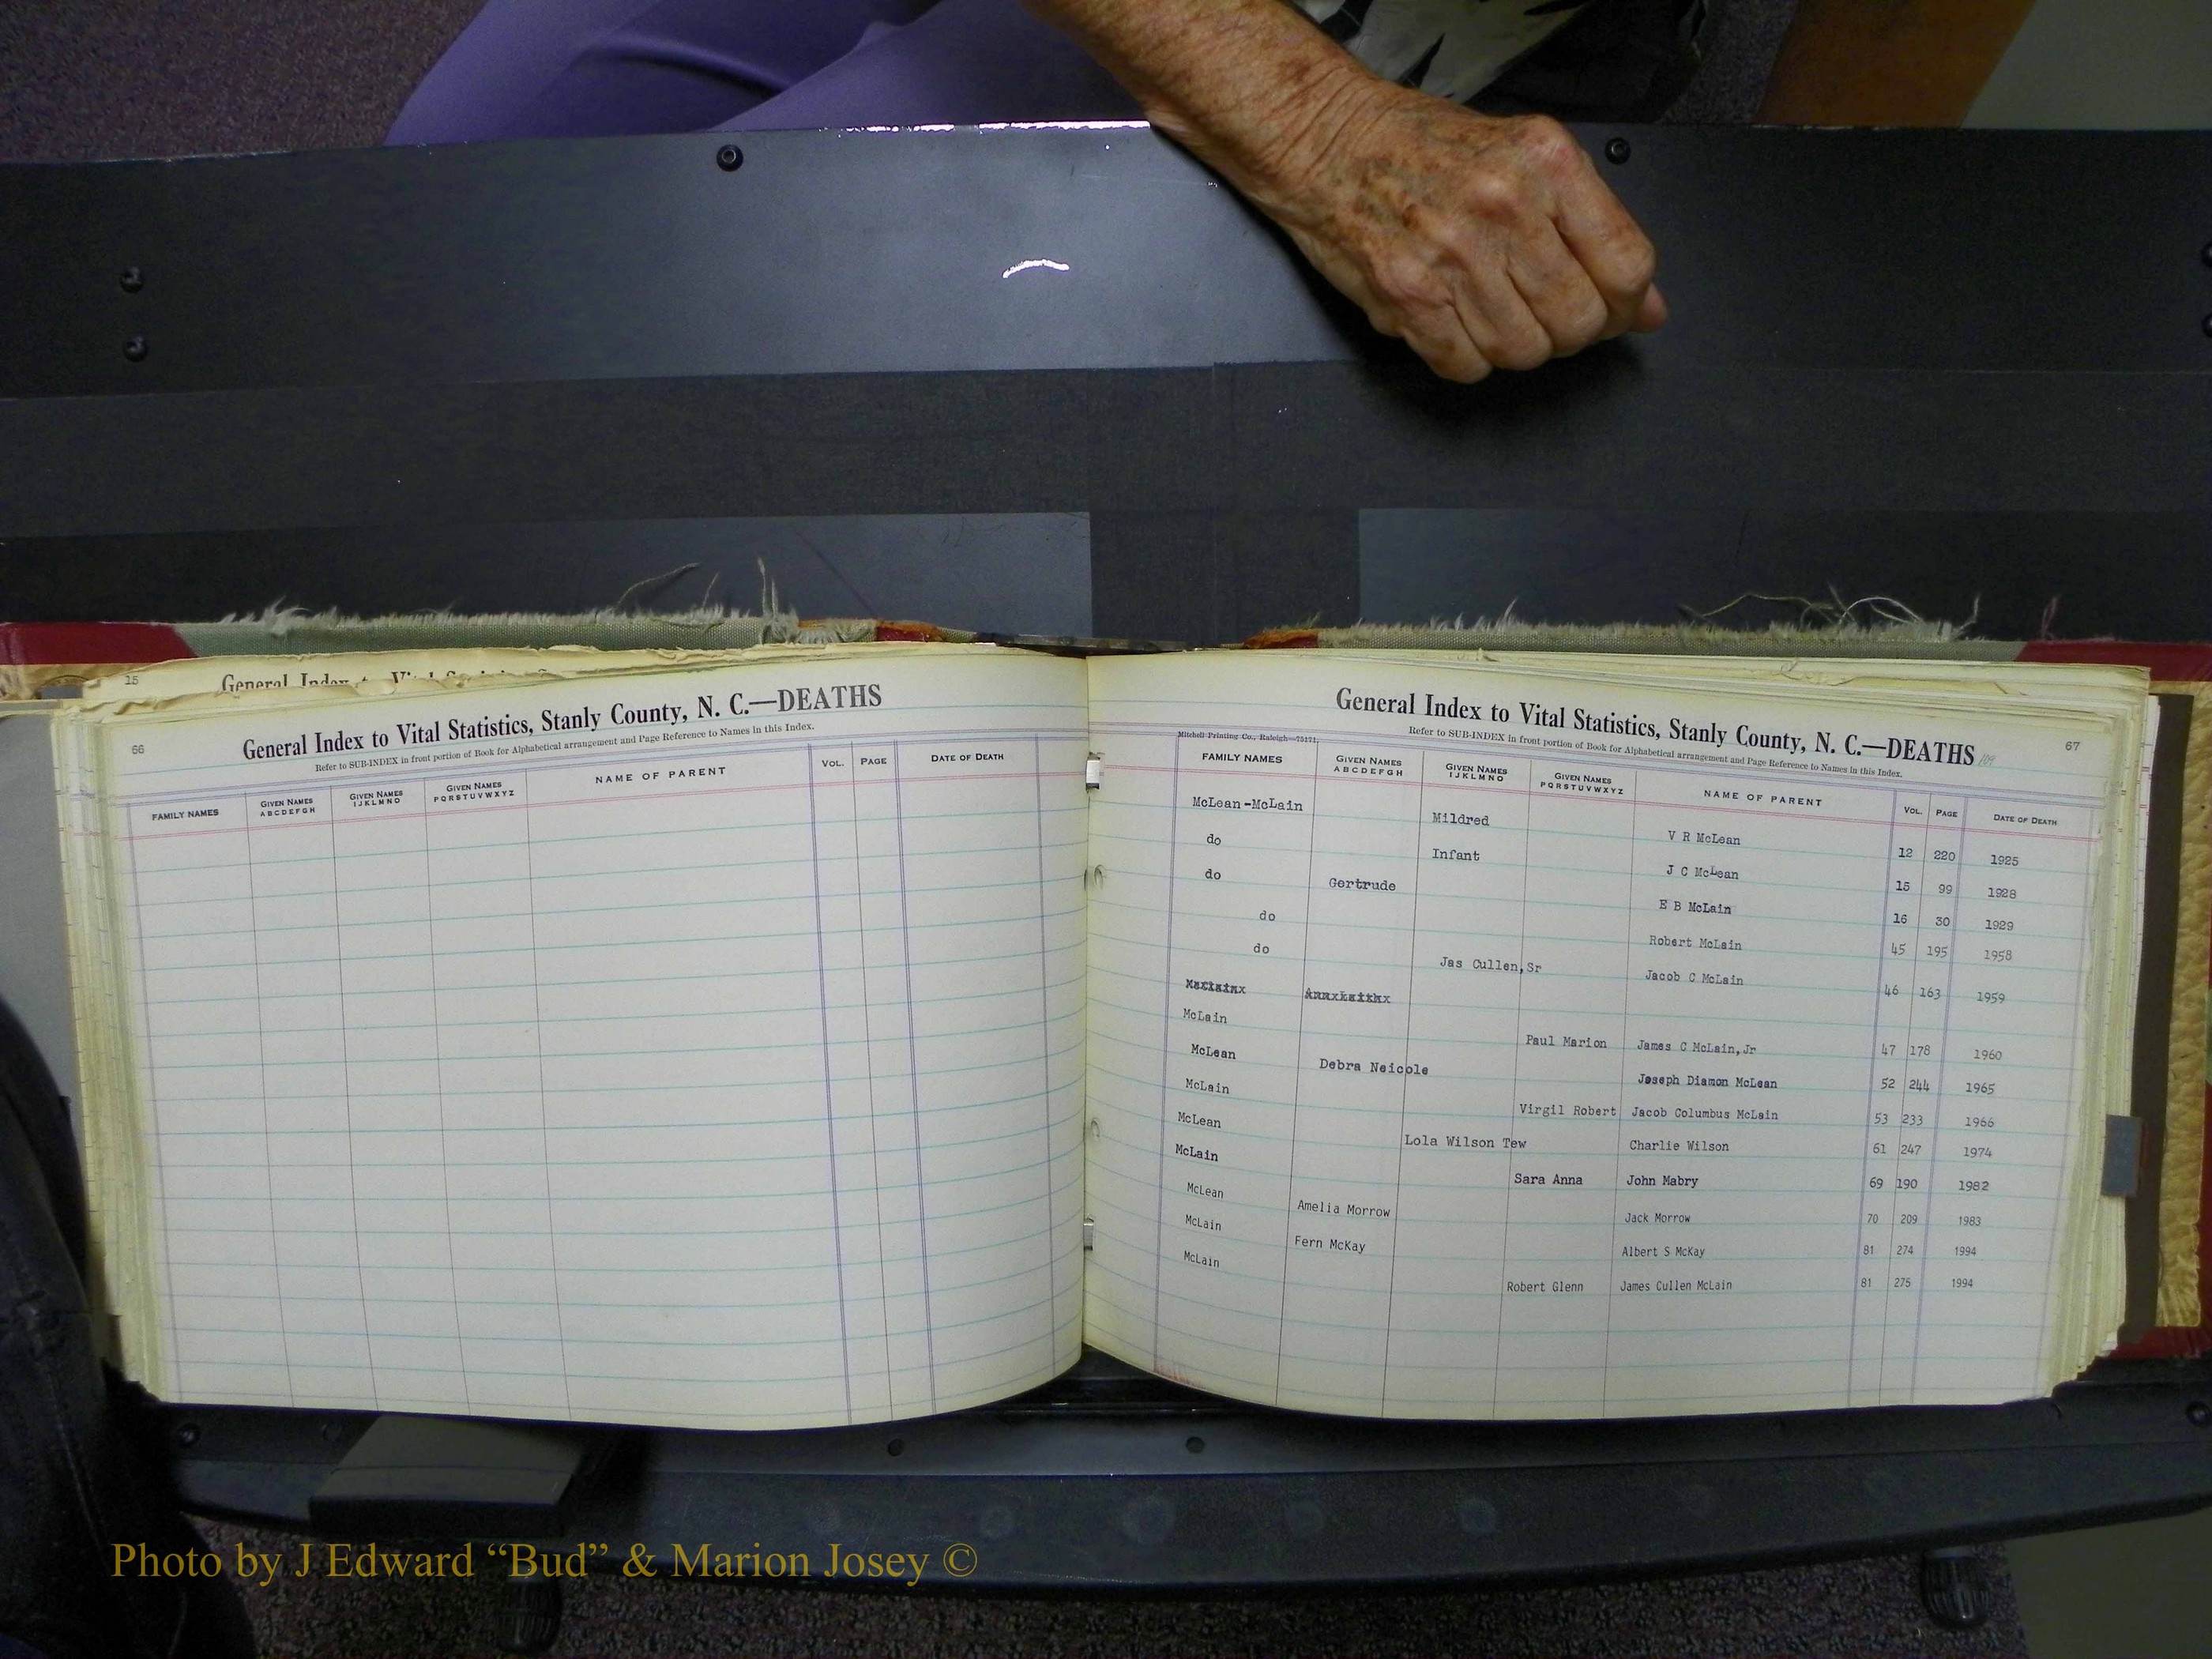 15
66
General Index to Vital Statistics, Stanly County, N. C.—DEATHS
Refer to SUB-INDEX in front portion of Book for Alphabetical arrangement and Page Reference to Names in this Index.
FAMILY NAMES GIVEN NAMES ABCDEFGH GIVEN NAMES IJKLMNO GIVEN NAMES PQRSTUVWXYZ NAME OF PARENT VOL. PAGE DATE OF DEATH
67
General Index to Vital Statistics, Stanly County, N. C.—DEATHS 109
Refer to SUB-INDEX in front portion of Book for Alphabetical arrangement and Page Reference to Names in this Index.
Mitchell Printing Co., Raleigh—75171
FAMILY NAMES GIVEN NAMES ABCDEFGH GIVEN NAMES IJKLMNO GIVEN NAMES PQRSTUVWXYZ NAME OF PARENT VOL. PAGE DATE OF DEATH
McLean-McLain Mildred V R McLean 12 220 1925
do Infant J C McLean 15 99 1928
do Gertrude E B McLain 16 30 1929
do Robert McLain 45 195 1958
do Jas Cullen,Sr Jacob C McLain 46 163 1959
McLain Paul Marion James C McLain,Jr 47 178 1960
McLean Debra Neicole Joseph Diamon McLean 52 244 1965
McLain Virgil Robert Jacob Columbus McLain 53 233 1966
McLean Lola Wilson Tew Charlie Wilson 61 247 1974
McLain Sara Anna John Mabry 69 190 1982
McLean Amelia Morrow Jack Morrow 70 209 1983
McLain Fern McKay Albert S McKay 81 274 1994
McLain Robert Glenn James Cullen McLain 81 275 1994
Photo by J Edward “Bud” & Marion Josey ©